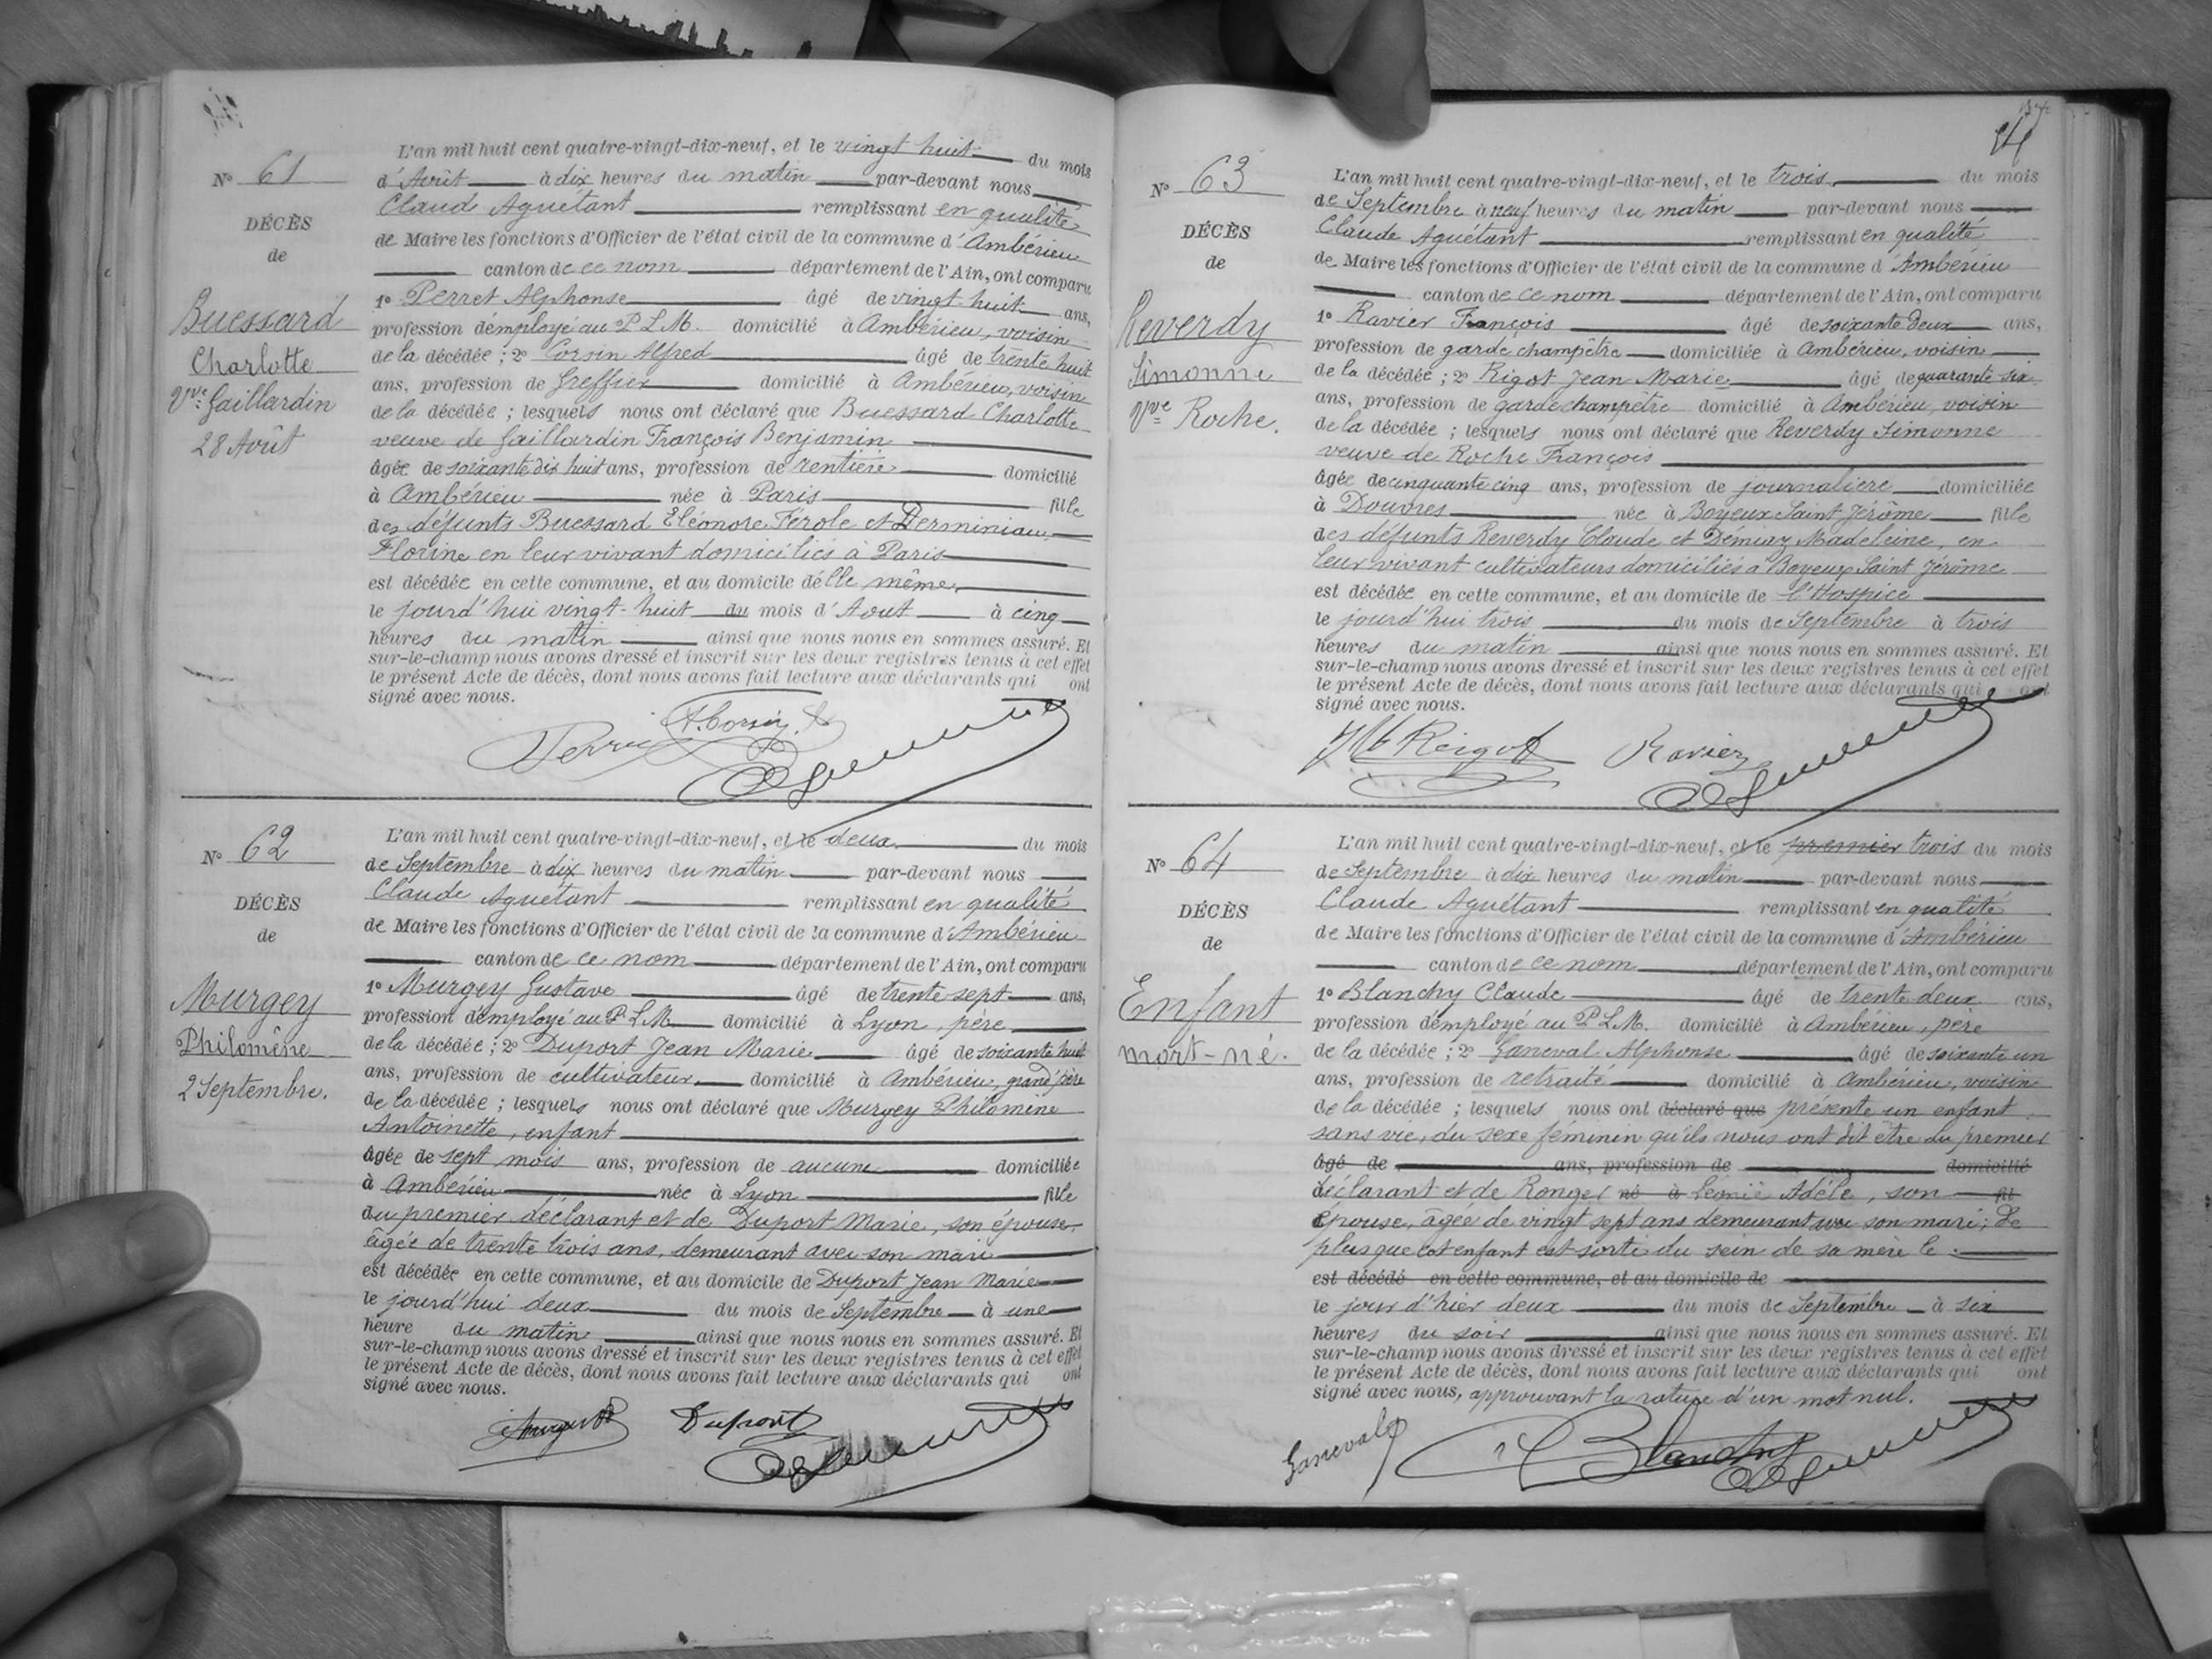 L'an mil huit cent quatre-vingt-dix-neuf, et le vingt huit du mois
N° 61
d'Août à dix heures du matin par-devant nous
Claude Aguétant remplissant en qualité
DÉCÈS
de Maire les fonctions d'Officier de l'état civil de la commune d'Ambérieu
de
canton de ce nom département de l'Ain, ont comparu
Buessard
1° Perret Alphonse âgé de vingt-huit ans,
profession d'employé au P.L.M. domicilié à Ambérieu, voisin
Charlotte
de la décédée ; 2° Corsin Alfred âgé de trente huit
ans, profession de Greffier domicilié à Ambérieu, voisin
Vve Gaillardin
de la décédée ; lesquels nous ont déclaré que Buessard Charlotte
28 Août
veuve de Gaillardin François Benjamin
âgée de soixante dix huit ans, profession de rentière domicilié
à Ambérieu née à Paris fille
des défunts Buessard Éléonore Férole et Derminiau
Florine en leur vivant domiciliés à Paris
est décédée en cette commune, et au domicile d'elle même
le jourd'hui vingt-huit du mois d'Aout à cinq
heures du matin ainsi que nous nous en sommes assuré. Et
sur-le-champ nous avons dressé et inscrit sur les deux registres tenus à cet effet
le présent Acte de décès, dont nous avons fait lecture aux déclarants qui ont
signé avec nous.
A. Corsin
L'an mil huit cent quatre-vingt-dix-neuf, et le deux du mois
N° 62
de Septembre à dix heures du matin par-devant nous
Claude Aguétant remplissant en qualité
DÉCÈS
de Maire les fonctions d'Officier de l'état civil de la commune d'Ambérieu
de
canton de ce nom département de l'Ain, ont comparu
Murgey
1° Murgey Gustave âgé de trente sept ans,
profession d'employé au P.L.M. domicilié à Lyon, père
Philomène
de la décédée ; 2° Duport Jean Marie âgé de soixante huit
ans, profession de cultivateur domicilié à Ambérieu, grand'père
2 Septembre.
de la décédée ; lesquels nous ont déclaré que Murgey Philomène
Antoinette, enfant
âgée de sept mois ans, profession de aucune domiciliée
à Ambérieu née à Lyon fille
du premier déclarant et de Duport Marie, son épouse,
âgée de trente trois ans, demeurant avec son mari
est décédée en cette commune, et au domicile de Duport Jean Marie
le jourd'hui deux du mois de Septembre à une
heure du matin ainsi que nous nous en sommes assuré. Et
sur-le-champ nous avons dressé et inscrit sur les deux registres tenus à cet effet
le présent Acte de décès, dont nous avons fait lecture aux déclarants qui ont
signé avec nous.
Duport
L'an mil huit cent quatre-vingt-dix-neuf, et le trois du mois
N° 63
de Septembre à neuf heures du matin par-devant nous
Claude Aguétant remplissant en qualité
DÉCÈS
de Maire les fonctions d'Officier de l'état civil de la commune d'Ambérieu
de
canton de ce nom département de l'Ain, ont comparu
Reverdy
1° Ravier François âgé de soixante deux ans,
profession de garde champêtre domiciliée à Ambérieu, voisin
Simonne
de la décédée ; 2° Rigot Jean Marie âgé de quarante-six
ans, profession de garde champêtre domicilié à Ambérieu, voisin
Vve Roche.
de la décédée ; lesquels nous ont déclaré que Reverdy Simonne
veuve de Roche François
âgée de cinquante cinq ans, profession de journalière domiciliée
à Douvres née à Boyeux Saint Jérôme fille
des défunts Reverdy Claude et Démiaz Madeleine, en
leur vivant cultivateurs domiciliés à Boyeux Saint Jérôme
est décédée en cette commune, et au domicile de l'Hospice
le jourd'hui trois du mois de Septembre à trois
heures du matin ainsi que nous nous en sommes assuré. Et
sur-le-champ nous avons dressé et inscrit sur les deux registres tenus à cet effet
le présent Acte de décès, dont nous avons fait lecture aux déclarants qui ont
signé avec nous.
Reigot Ravier
L'an mil huit cent quatre-vingt-dix-neuf, et le premier trois du mois
N° 64
de Septembre à dix heures du matin par-devant nous
Claude Aguétant remplissant en qualité
DÉCÈS
de Maire les fonctions d'Officier de l'état civil de la commune d'Ambérieu
de
canton de ce nom département de l'Ain, ont comparu
Enfant
1° Blanchy Claude âgé de trente deux ans,
profession d'employé au P.L.M. domicilié à Ambérieu, père
mort-né.
de la décédée ; 2° Ganeval Alphonse âgé de soixante un
ans, profession de retraité domicilié à Ambérieu, voisin
de la décédée ; lesquels nous ont déclaré que présente un enfant
sans vie, du sexe féminin qu'ils nous ont dit être du premier
âgé de ans, profession de domicilié
déclarant et de Ronger né à Léonie Adèle, son fil
épouse, âgée de vingt sept ans demeurant avec son mari ; de
plus que cet enfant est sorti du sein de sa mère le :
est décédé en cette commune, et au domicile de
le jour d'hier deux du mois de Septembre à six
heures du soir ainsi que nous nous en sommes assuré. Et
sur-le-champ nous avons dressé et inscrit sur les deux registres tenus à cet effet
le présent Acte de décès, dont nous avons fait lecture aux déclarants qui ont
signé avec nous, approuvant la rature d'un mot nul.
Ganeval Blanchy